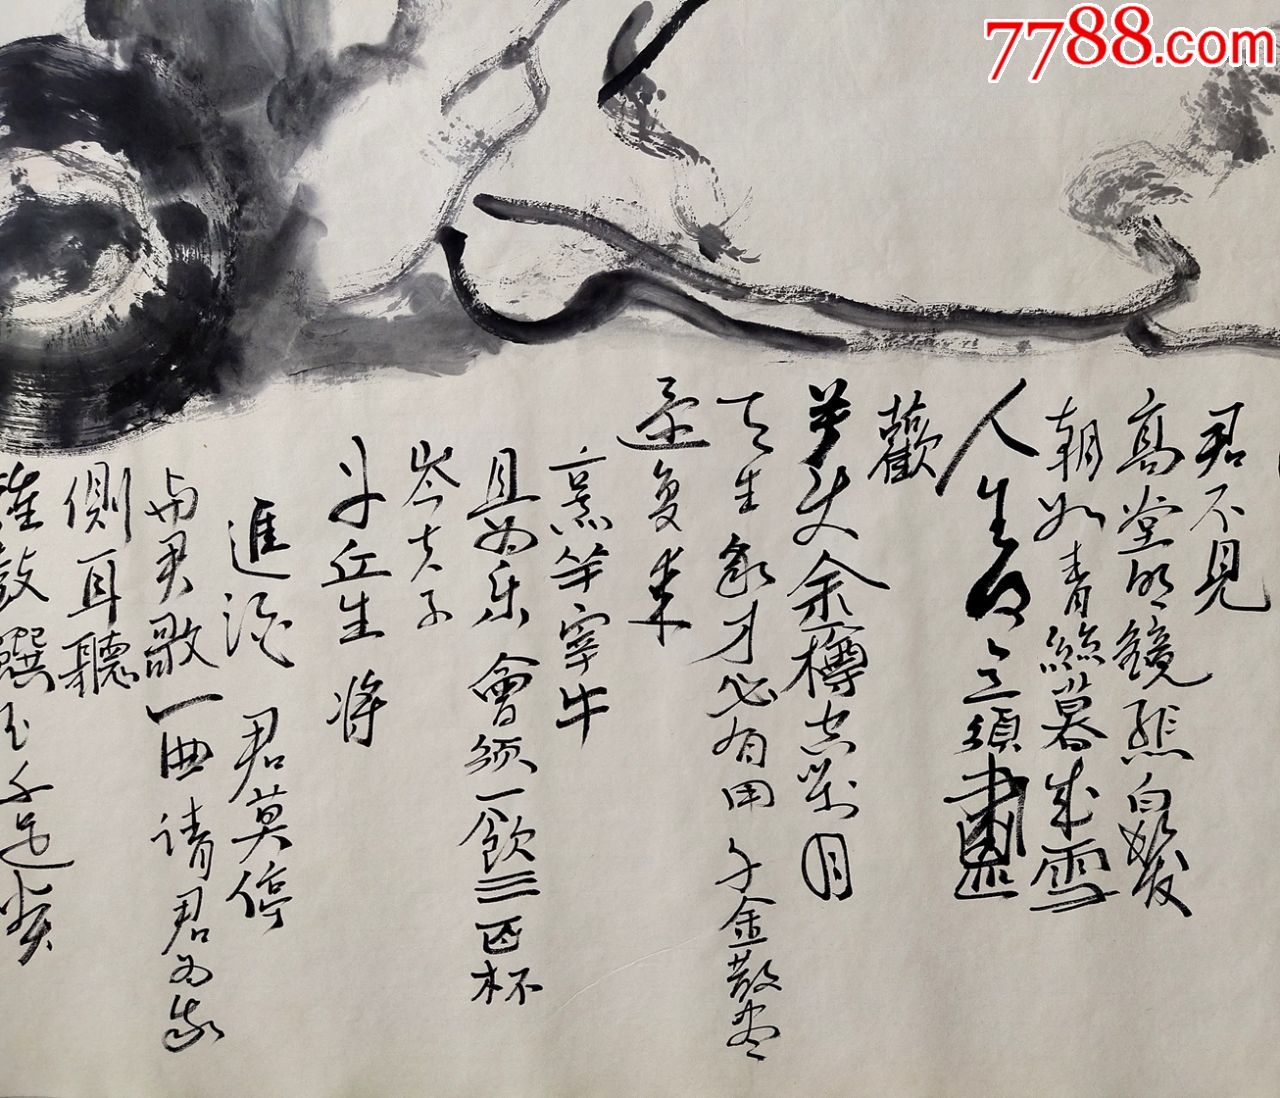 7788.com
君不見
高堂明鏡悲白髮
朝如青絲暮成雪
人生得意須盡
歡
莫使金樽空對月
天生我才必有用千金散尽
还复来
烹羊宰牛
且为乐會须一飲三百杯
岑夫子
丹丘生 将
進酒 君莫停
与君歌一曲请君为我
側耳聽
鼓饌玉不足贵